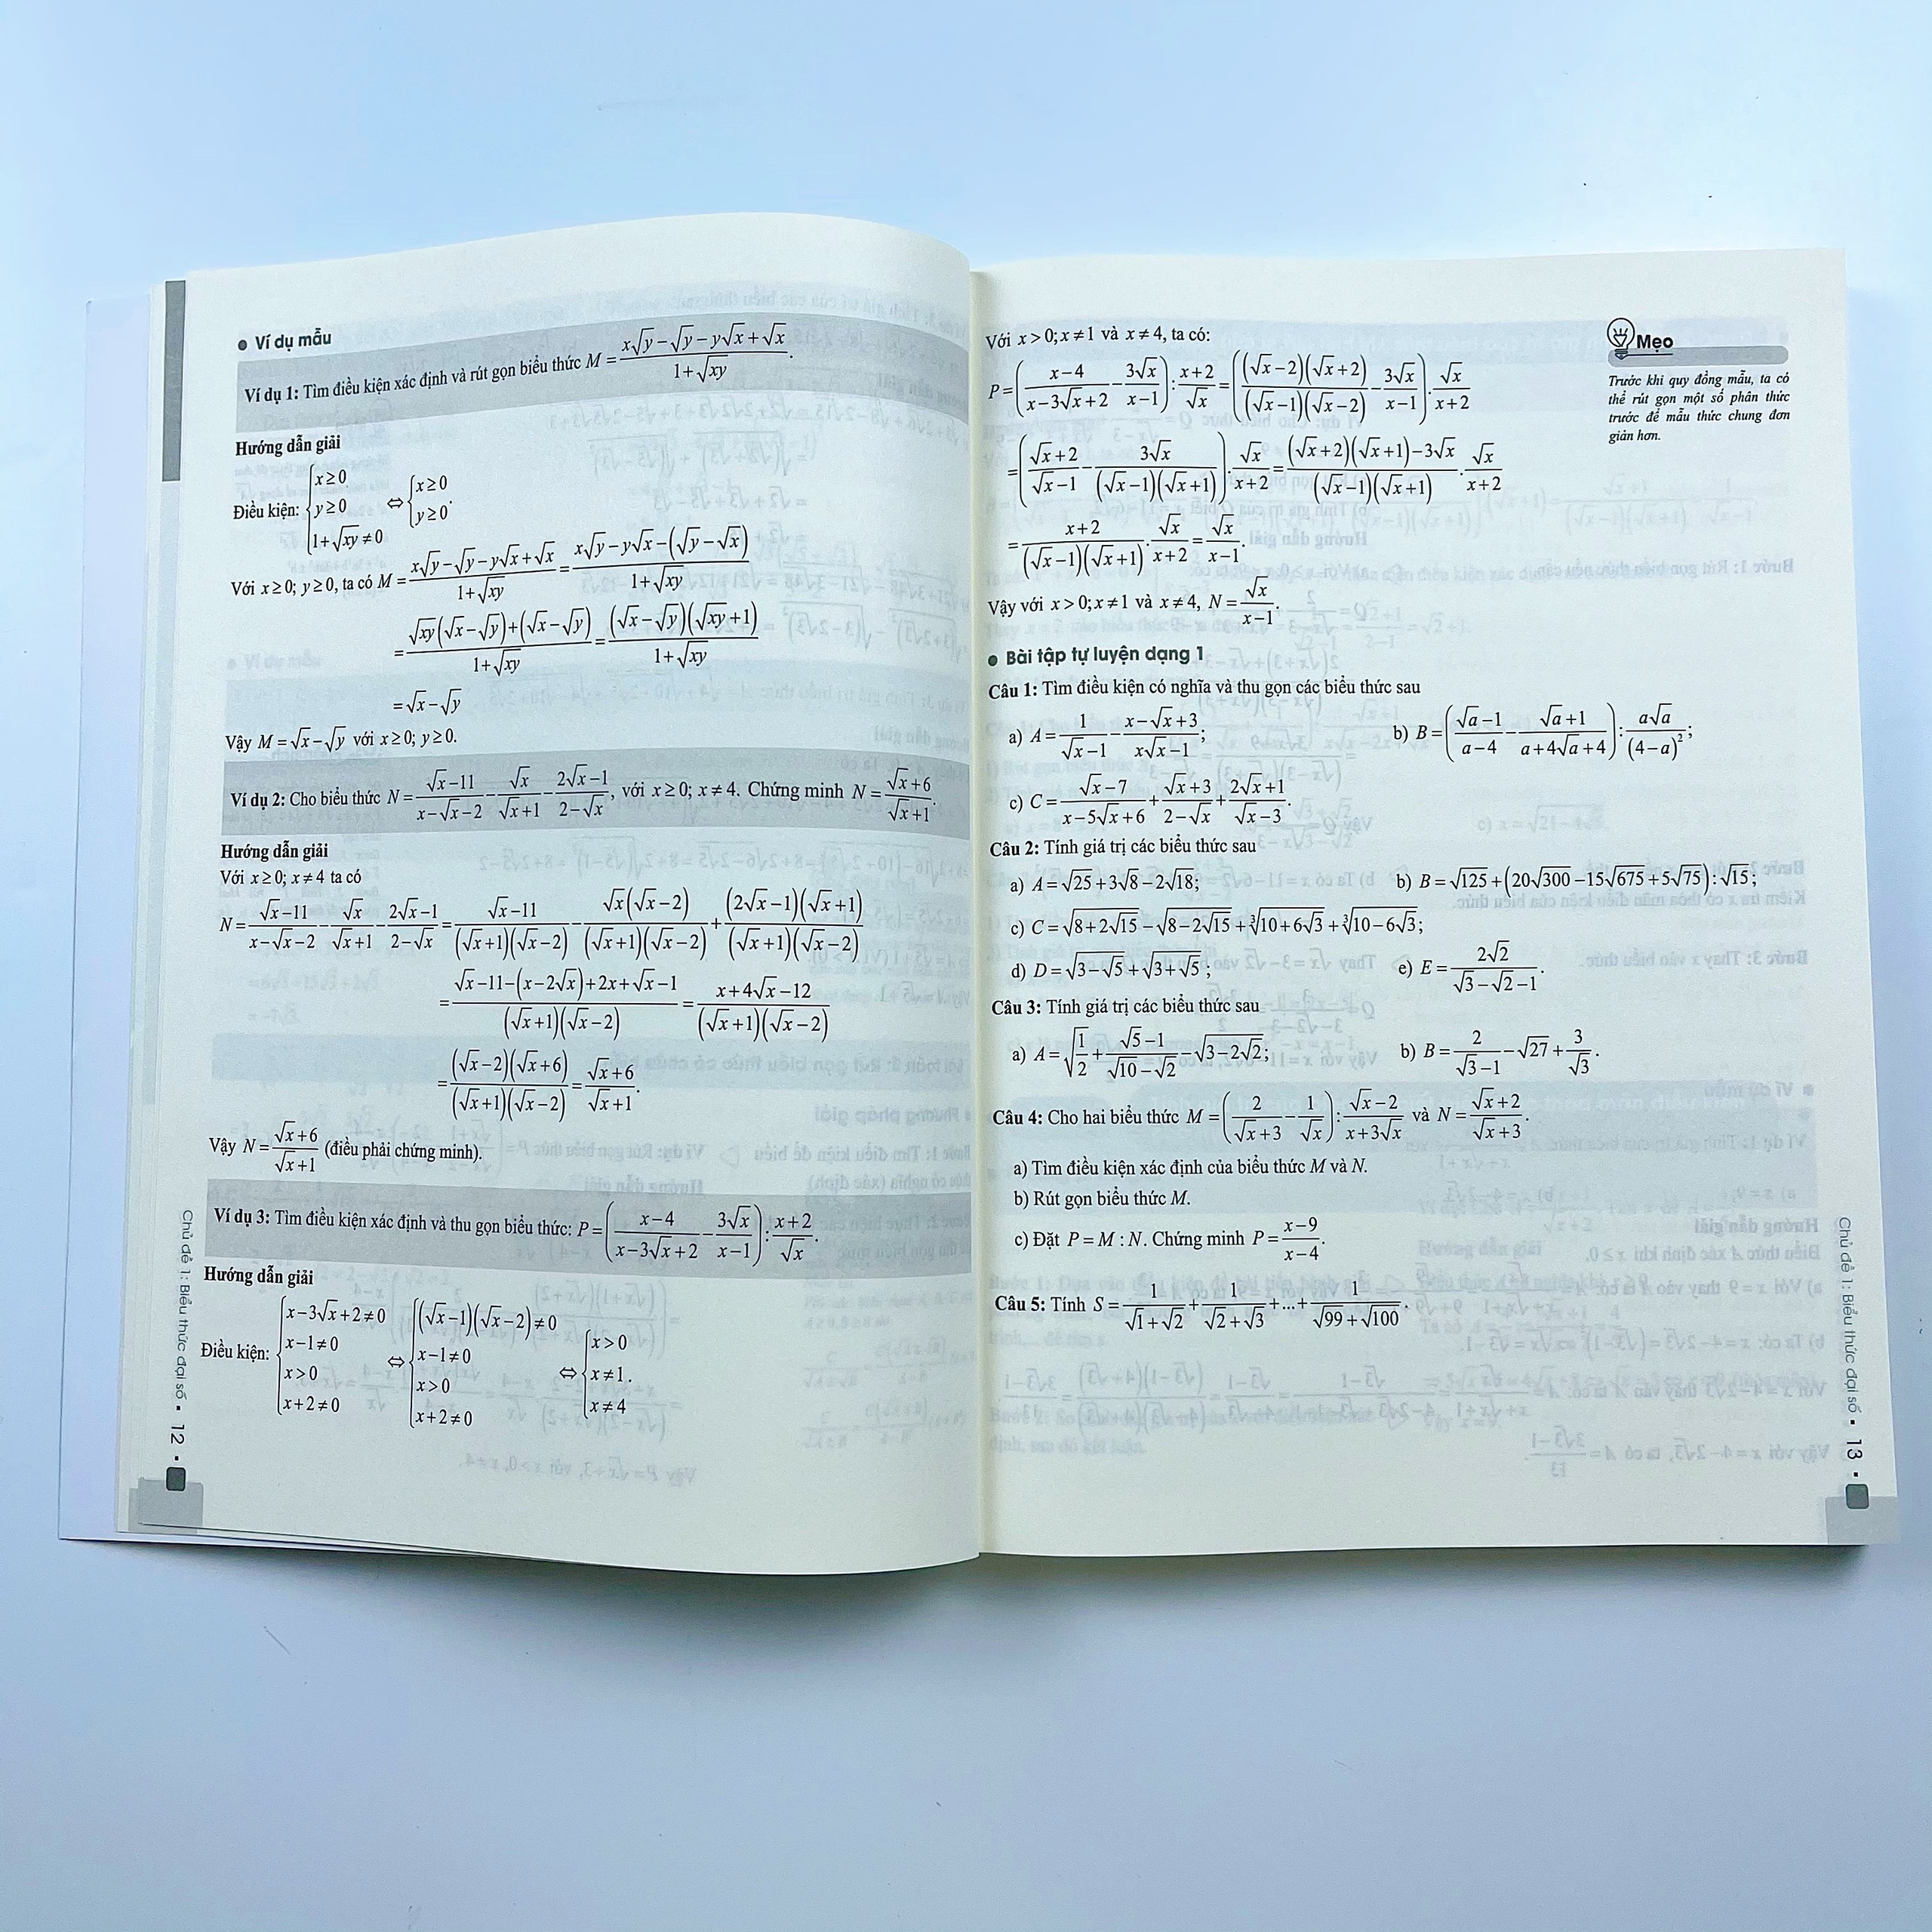 • Ví dụ mẫu
Ví dụ 1: Tìm điều kiện xác định và rút gọn biểu thức M = (x√y − √y − y√x + √x)/(1 + √xy).
Hướng dẫn giải
Điều kiện: { x ≥ 0; y ≥ 0; 1 + √xy ≠ 0 ⇔ { x ≥ 0; y ≥ 0.
Với x ≥ 0; y ≥ 0, ta có M = (x√y − √y − y√x + √x)/(1 + √xy) = (x√y − y√x − (√y − √x))/(1 + √xy)
= (√xy(√x − √y) + (√x − √y))/(1 + √xy) = ((√x − √y)(√xy + 1))/(1 + √xy)
= √x − √y
Vậy M = √x − √y với x ≥ 0; y ≥ 0.
Ví dụ 2: Cho biểu thức N = (√x − 11)/(x − √x − 2) − √x/(√x + 1) − (2√x − 1)/(2 − √x), với x ≥ 0; x ≠ 4. Chứng minh N = (√x + 6)/(√x + 1).
Hướng dẫn giải
Với x ≥ 0; x ≠ 4 ta có
N = (√x − 11)/(x − √x − 2) − √x/(√x + 1) − (2√x − 1)/(2 − √x) = (√x − 11)/((√x + 1)(√x − 2)) − (√x(√x − 2))/((√x + 1)(√x − 2)) + ((2√x − 1)(√x + 1))/((√x + 1)(√x − 2))
= (√x − 11 − (x − 2√x) + 2x + √x − 1)/((√x + 1)(√x − 2)) = (x + 4√x − 12)/((√x + 1)(√x − 2))
= ((√x − 2)(√x + 6))/((√x + 1)(√x − 2)) = (√x + 6)/(√x + 1).
Vậy N = (√x + 6)/(√x + 1) (điều phải chứng minh).
Ví dụ 3: Tìm điều kiện xác định và thu gọn biểu thức: P = ((x − 4)/(x − 3√x + 2) − 3√x/(x − 1)) : (x + 2)/√x.
Hướng dẫn giải
Điều kiện: { x − 3√x + 2 ≠ 0; x − 1 ≠ 0; x > 0; x + 2 ≠ 0 ⇔ { (√x − 1)(√x − 2) ≠ 0; x − 1 ≠ 0; x > 0; x + 2 ≠ 0 ⇔ { x > 0; x ≠ 1; x ≠ 4.
Chủ đề 1: Biểu thức đại số • 12 •
Với x > 0; x ≠ 1 và x ≠ 4, ta có:
P = ((x − 4)/(x − 3√x + 2) − 3√x/(x − 1)) : (x + 2)/√x = (((√x − 2)(√x + 2))/((√x − 1)(√x − 2)) − 3√x/(x − 1)) . √x/(x + 2)
= ((√x + 2)/(√x − 1) − 3√x/((√x − 1)(√x + 1))) . √x/(x + 2) = ((√x + 2)(√x + 1) − 3√x)/((√x − 1)(√x + 1)) . √x/(x + 2)
= (x + 2)/((√x − 1)(√x + 1)) . √x/(x + 2) = √x/(x − 1).
Vậy với x > 0; x ≠ 1 và x ≠ 4, N = √x/(x − 1).
Mẹo
Trước khi quy đồng mẫu, ta có
thể rút gọn một số phân thức
trước để mẫu thức chung đơn
giản hơn.
• Bài tập tự luyện dạng 1
Câu 1: Tìm điều kiện có nghĩa và thu gọn các biểu thức sau
a) A = 1/(√x − 1) − (x − √x + 3)/(x√x − 1); b) B = ((√a − 1)/(a − 4) − (√a + 1)/(a + 4√a + 4)) : a√a/(4 − a)²;
c) C = (√x − 7)/(x − 5√x + 6) + (√x + 3)/(2 − √x) + (2√x + 1)/(√x − 3).
Câu 2: Tính giá trị các biểu thức sau
a) A = √25 + 3√8 − 2√18; b) B = √125 + (20√300 − 15√675 + 5√75) : √15;
c) C = √(8 + 2√15) − √(8 − 2√15) + ∛(10 + 6√3) + ∛(10 − 6√3);
d) D = √(3 − √5) + √(3 + √5); e) E = 2√2/(√3 − √2 − 1).
Câu 3: Tính giá trị các biểu thức sau
a) A = √(1/2) + (√5 − 1)/(√10 − √2) − √(3 − 2√2); b) B = 2/(√3 − 1) − √27 + 3/√3.
Câu 4: Cho hai biểu thức M = (2/(√x + 3) − 1/√x) : (√x − 2)/(x + 3√x) và N = (√x + 2)/(√x + 3).
a) Tìm điều kiện xác định của biểu thức M và N.
b) Rút gọn biểu thức M.
c) Đặt P = M : N. Chứng minh P = (x − 9)/(x − 4).
Câu 5: Tính S = 1/(√1 + √2) + 1/(√2 + √3) + ... + 1/(√99 + √100).
Chủ đề 1: Biểu thức đại số • 13 •